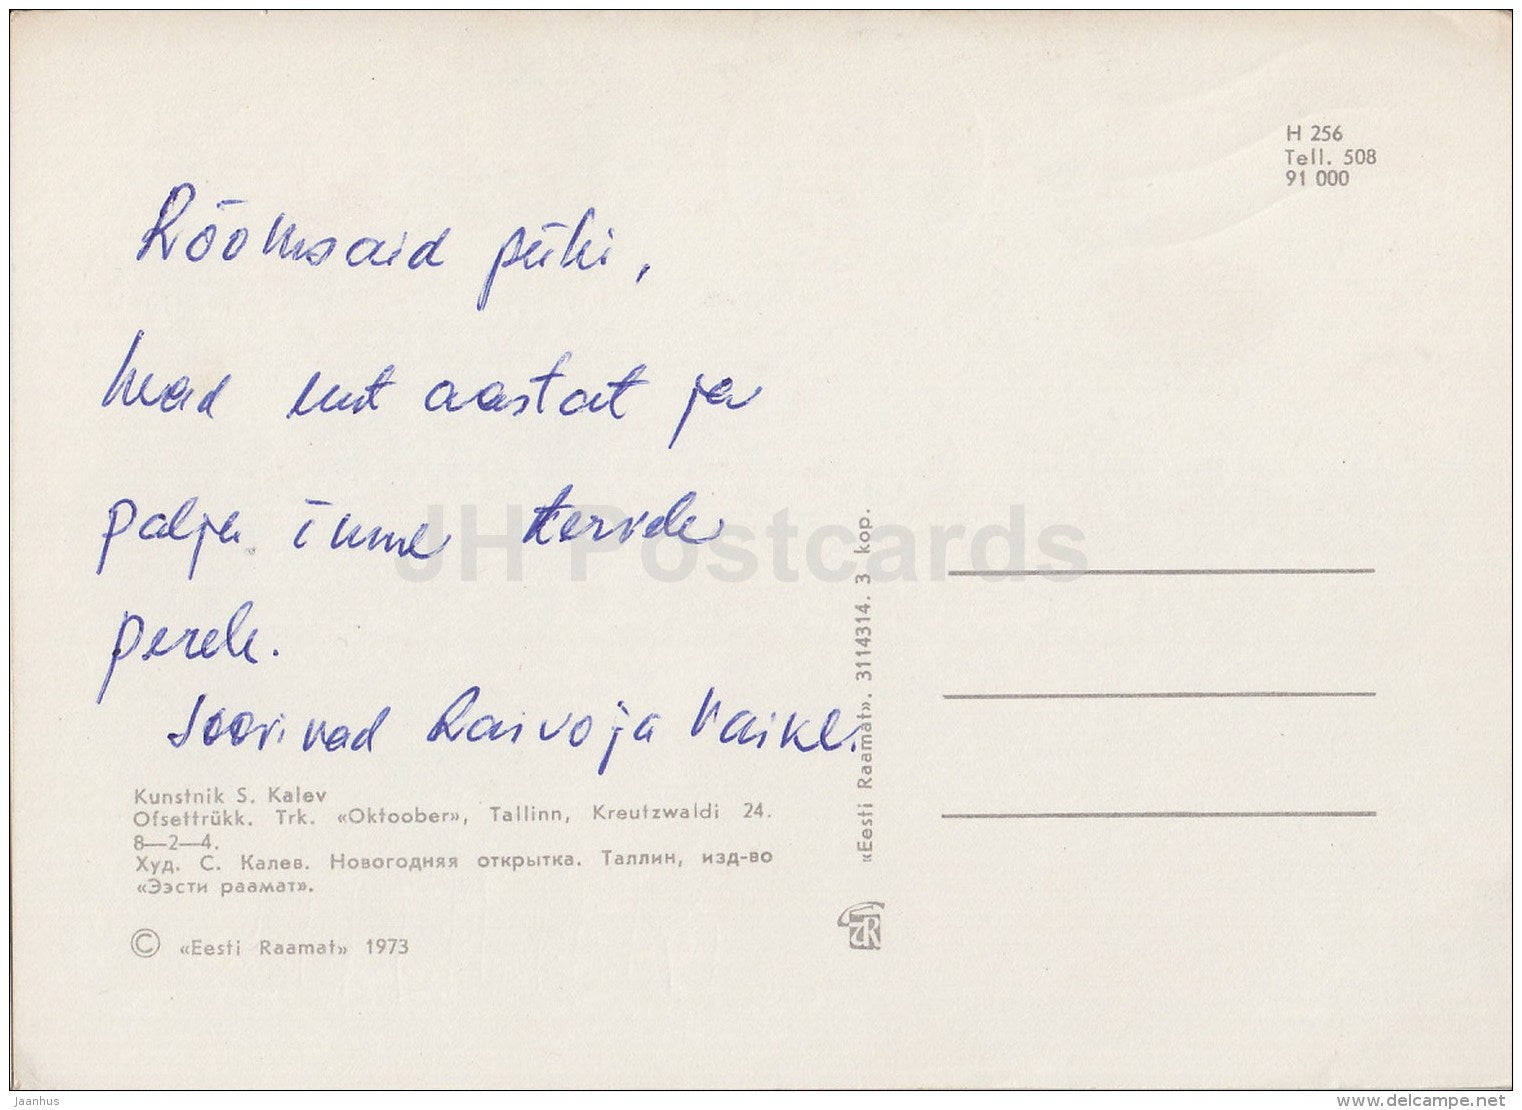 H 256
Tell. 508
91 000
Rõõmsaid pühi,
head uut aastat ja
palju õnne tervele
perele.
Soovivad Raivo ja Maike.
JH Postcards
«Eesti Raamat». 3114314. 3 kop.
Kunstnik S. Kalev
Ofsettrükk. Trk. «Oktoober», Tallinn, Kreutzwaldi 24.
8—2—4.
Худ. С. Калев. Новогодняя открытка. Таллин, изд-во
«Ээсти раамат».
© «Eesti Raamat» 1973
ER
Jaanhus
www.delcampe.net